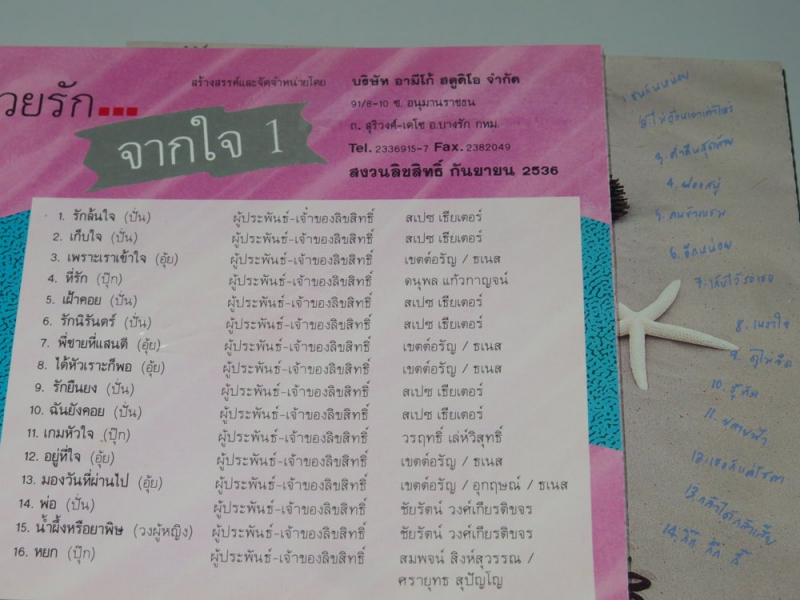 วยรัก...
จากใจ 1
สร้างสรรค์และจัดจำหน่ายโดย บริษัท อามีโก้ สตูดิโอ จำกัด
91/8-10 ซ. อนุมานราชธน
ถ. สุริวงศ์-เดโช อ.บางรัก กทม.
Tel. 2336915-7 Fax. 2382049
สงวนลิขสิทธิ์ กันยายน 2536
1. รักล้นใจ (ปั่น) ผู้ประพันธ์-เจ้าของลิขสิทธิ์ สเปซ เธียเตอร์
2. เก็บใจ (ปั่น) ผู้ประพันธ์-เจ้าของลิขสิทธิ์ สเปซ เธียเตอร์
3. เพราะเราเข้าใจ (อุ้ย) ผู้ประพันธ์-เจ้าของลิขสิทธิ์ เขตต์อรัญ / ธเนส
4. ที่รัก (ปุ๊ก) ผู้ประพันธ์-เจ้าของลิขสิทธิ์ ดนุพล แก้วกาญจน์
5. เฝ้าคอย (ปั่น) ผู้ประพันธ์-เจ้าของลิขสิทธิ์ สเปซ เธียเตอร์
6. รักนิรันดร์ (ปั่น) ผู้ประพันธ์-เจ้าของลิขสิทธิ์ สเปซ เธียเตอร์
7. พี่ชายที่แสนดี (อุ้ย) ผู้ประพันธ์-เจ้าของลิขสิทธิ์ เขตต์อรัญ / ธเนส
8. ได้หัวเราะก็พอ (อุ้ย) ผู้ประพันธ์-เจ้าของลิขสิทธิ์ เขตต์อรัญ / ธเนส
9. รักยืนยง (ปั่น) ผู้ประพันธ์-เจ้าของลิขสิทธิ์ สเปซ เธียเตอร์
10. ฉันยังคอย (ปั่น) ผู้ประพันธ์-เจ้าของลิขสิทธิ์ สเปซ เธียเตอร์
11. เกมหัวใจ (ปุ๊ก) ผู้ประพันธ์-เจ้าของลิขสิทธิ์ วรฤทธิ์ เล่ห์วิสุทธิ์
12. อยู่ที่ใจ (อุ้ย) ผู้ประพันธ์-เจ้าของลิขสิทธิ์ เขตต์อรัญ / ธเนส
13. มองวันที่ผ่านไป (อุ้ย) ผู้ประพันธ์-เจ้าของลิขสิทธิ์ เขตต์อรัญ / อุกฤษณ์ / ธเนส
14. พ่อ (ปั่น) ผู้ประพันธ์-เจ้าของลิขสิทธิ์ ชัยรัตน์ วงศ์เกียรติขจร
15. น้ำผึ้งหรือยาพิษ (วงผู้หญิง) ผู้ประพันธ์-เจ้าของลิขสิทธิ์ ชัยรัตน์ วงศ์เกียรติขจร
16. หยก (ปุ๊ก) ผู้ประพันธ์-เจ้าของลิขสิทธิ์ สมพจน์ สิงห์สุวรรณ /
ศรายุทธ สุปัญโญ
6. อีกหน่อย
8. เหงาใจ
11. ปลายฟ้า